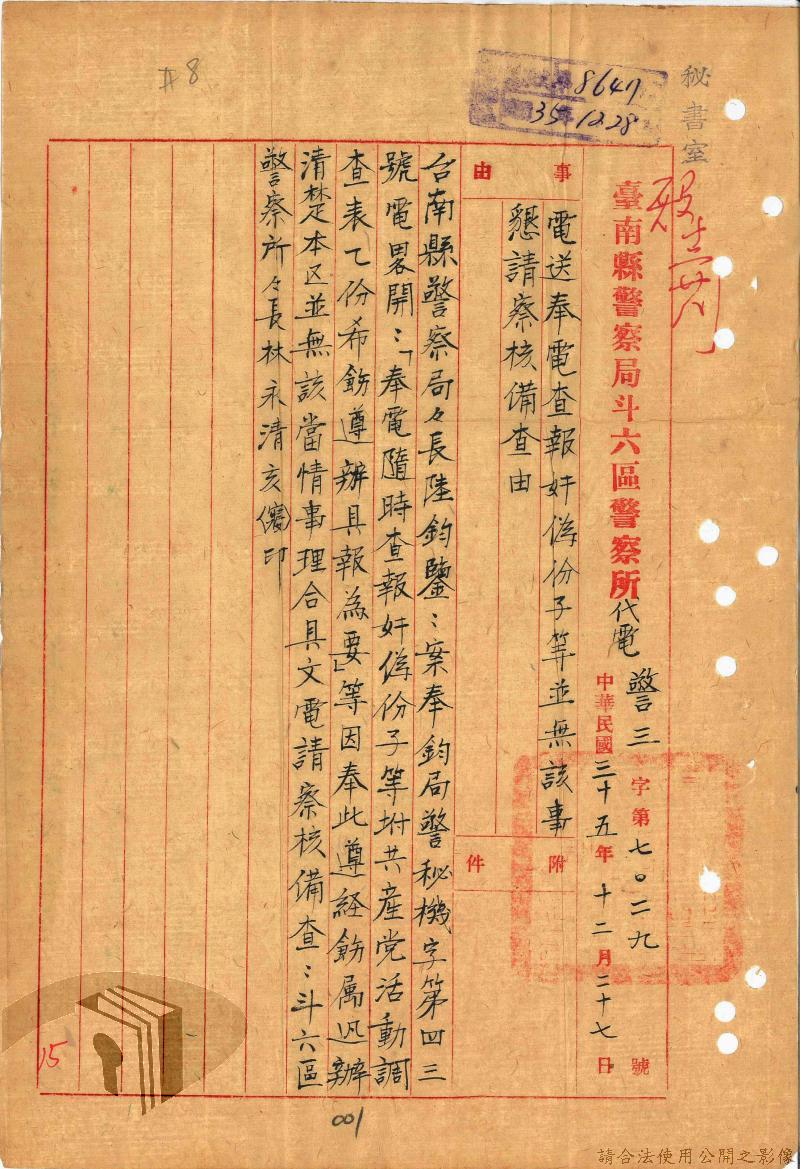 #8
8647
35.12.28
秘書室
臺南縣警察局斗六區警察所代電
警三字第七〇二九號
中華民國三十五年十二月二十七日
事由
電送奉電查報奸偽份子等並無該事
懇請察核備查由
附件
台南縣警察局々長陸鈞鑒：案奉鈞局警秘機字第四三
號電畧開：「奉電隨時查報奸偽份子等坿共產党活動調
查表乙份希飭遵辦具報為要」等因奉此遵経飭属迅辦
清楚本区並無該當情事理合具文電請察核備查：斗六區
警察所々長林永清亥印
15
001
請合法使用公開之影像